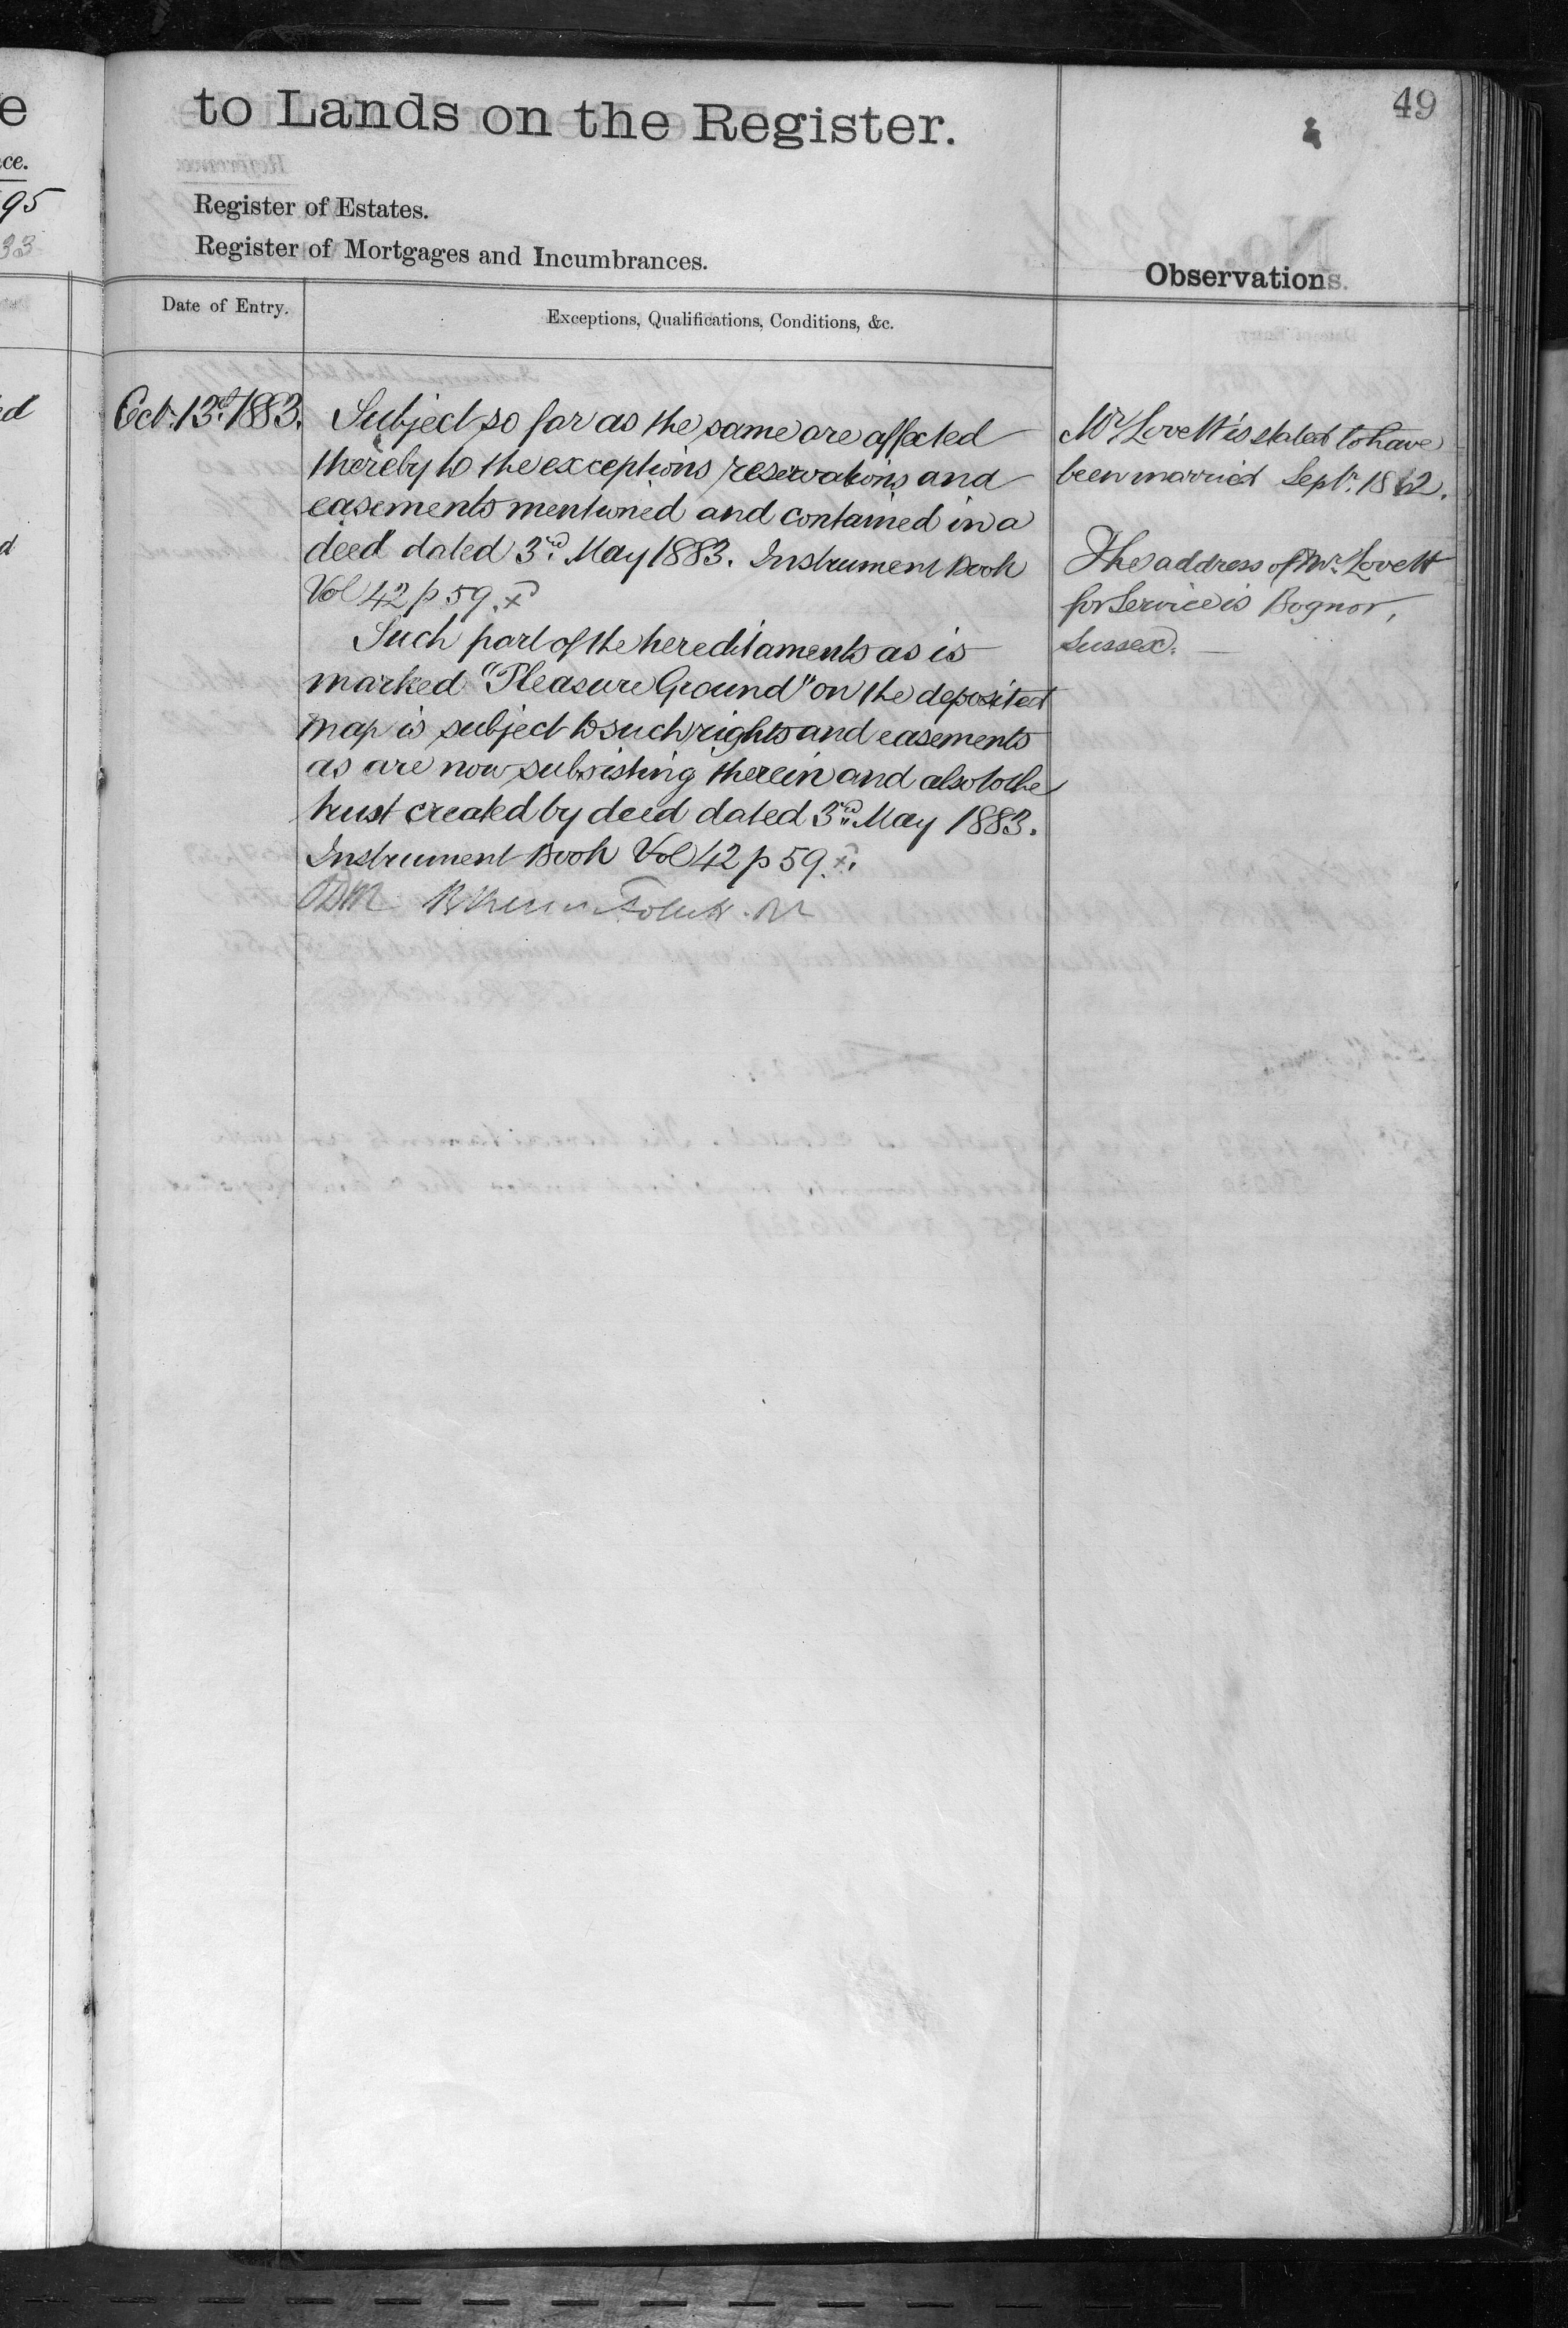 e
ce.
95
33
ed
d
to Lands on the Register.
49
Register of Estates.
Register of Mortgages and Incumbrances.
Observations.
Date of Entry.
Exceptions, Qualifications, Conditions, &c.
Oct. 13th 1883.
Subject so far as the same are affected
thereby to the exceptions reservations and
easements mentioned and contained in a
deed dated 3rd May 1883. Instrument Book
Vol 42 p 59. x
Such part of the hereditaments as is
marked "Pleasure Ground" on the deposited
map is subject to such rights and easements
as are now subsisting therein and also to the
trust created by deed dated 3rd May 1883.
Instrument Book Vol 42 p 59. x.
Mr Lovett is stated to have
been married Septr. 1862.
The address of Mr. Lovett
for Service is Bognor,
Sussex.